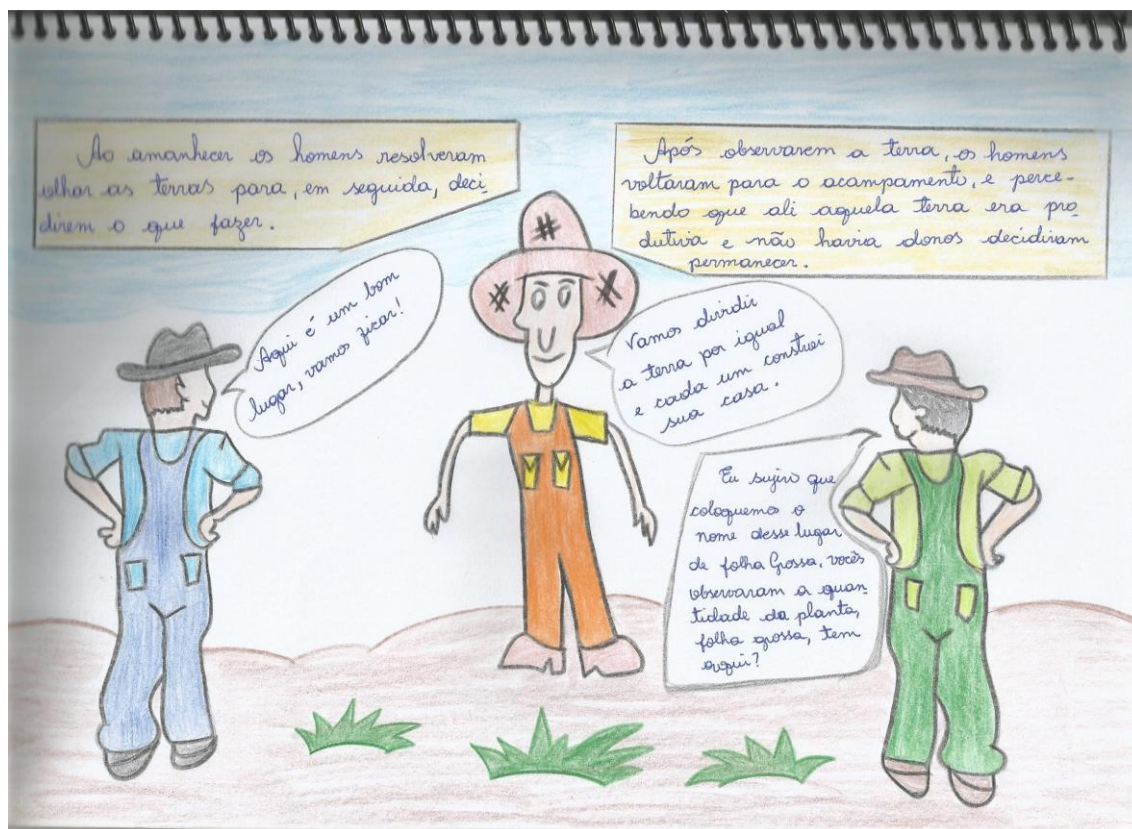 Ao amanhecer os homens resolveram
olhar as terras para, em seguida, deci-
direm o que fazer.
Após observarem a terra, os homens
voltaram para o acampamento, e perce-
bendo que ali aquela terra era pro-
dutiva e não havia donos decidiram
permanecer.
Aqui é um bom
lugar, vamos ficar!
Vamos dividir
a terra por igual
e cada um constroi
sua casa.
Eu sujiro que
coloquemos o
nome desse lugar
de folha Grossa, vocês
observaram a quan-
tidade da planta,
folha grossa, tem
aqui?